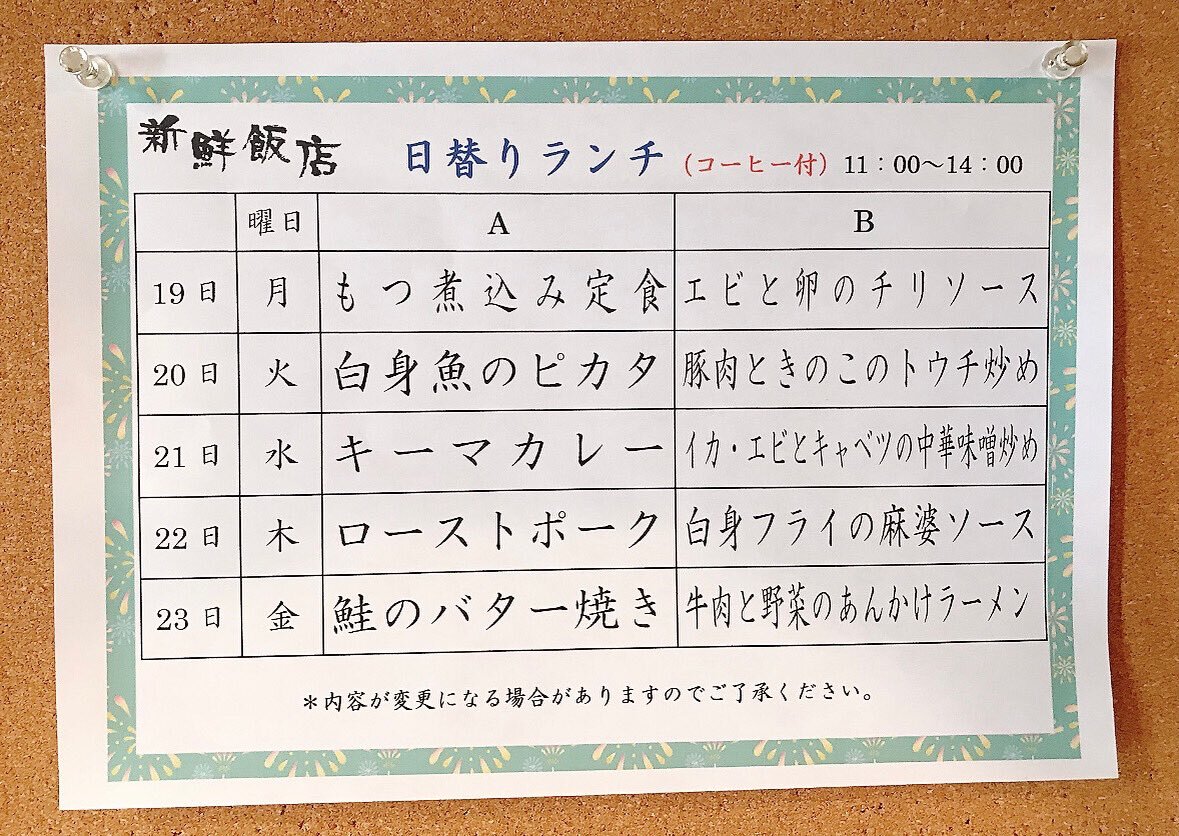 新鮮飯店 日替りランチ (コーヒー付) 11：00～14：00
曜日 A B
19日 月 もつ煮込み定食 エビと卵のチリソース
20日 火 白身魚のピカタ 豚肉ときのこのトウチ炒め
21日 水 キーマカレー イカ・エビとキャベツの中華味噌炒め
22日 木 ローストポーク 白身フライの麻婆ソース
23日 金 鮭のバター焼き 牛肉と野菜のあんかけラーメン
＊内容が変更になる場合がありますのでご了承ください。